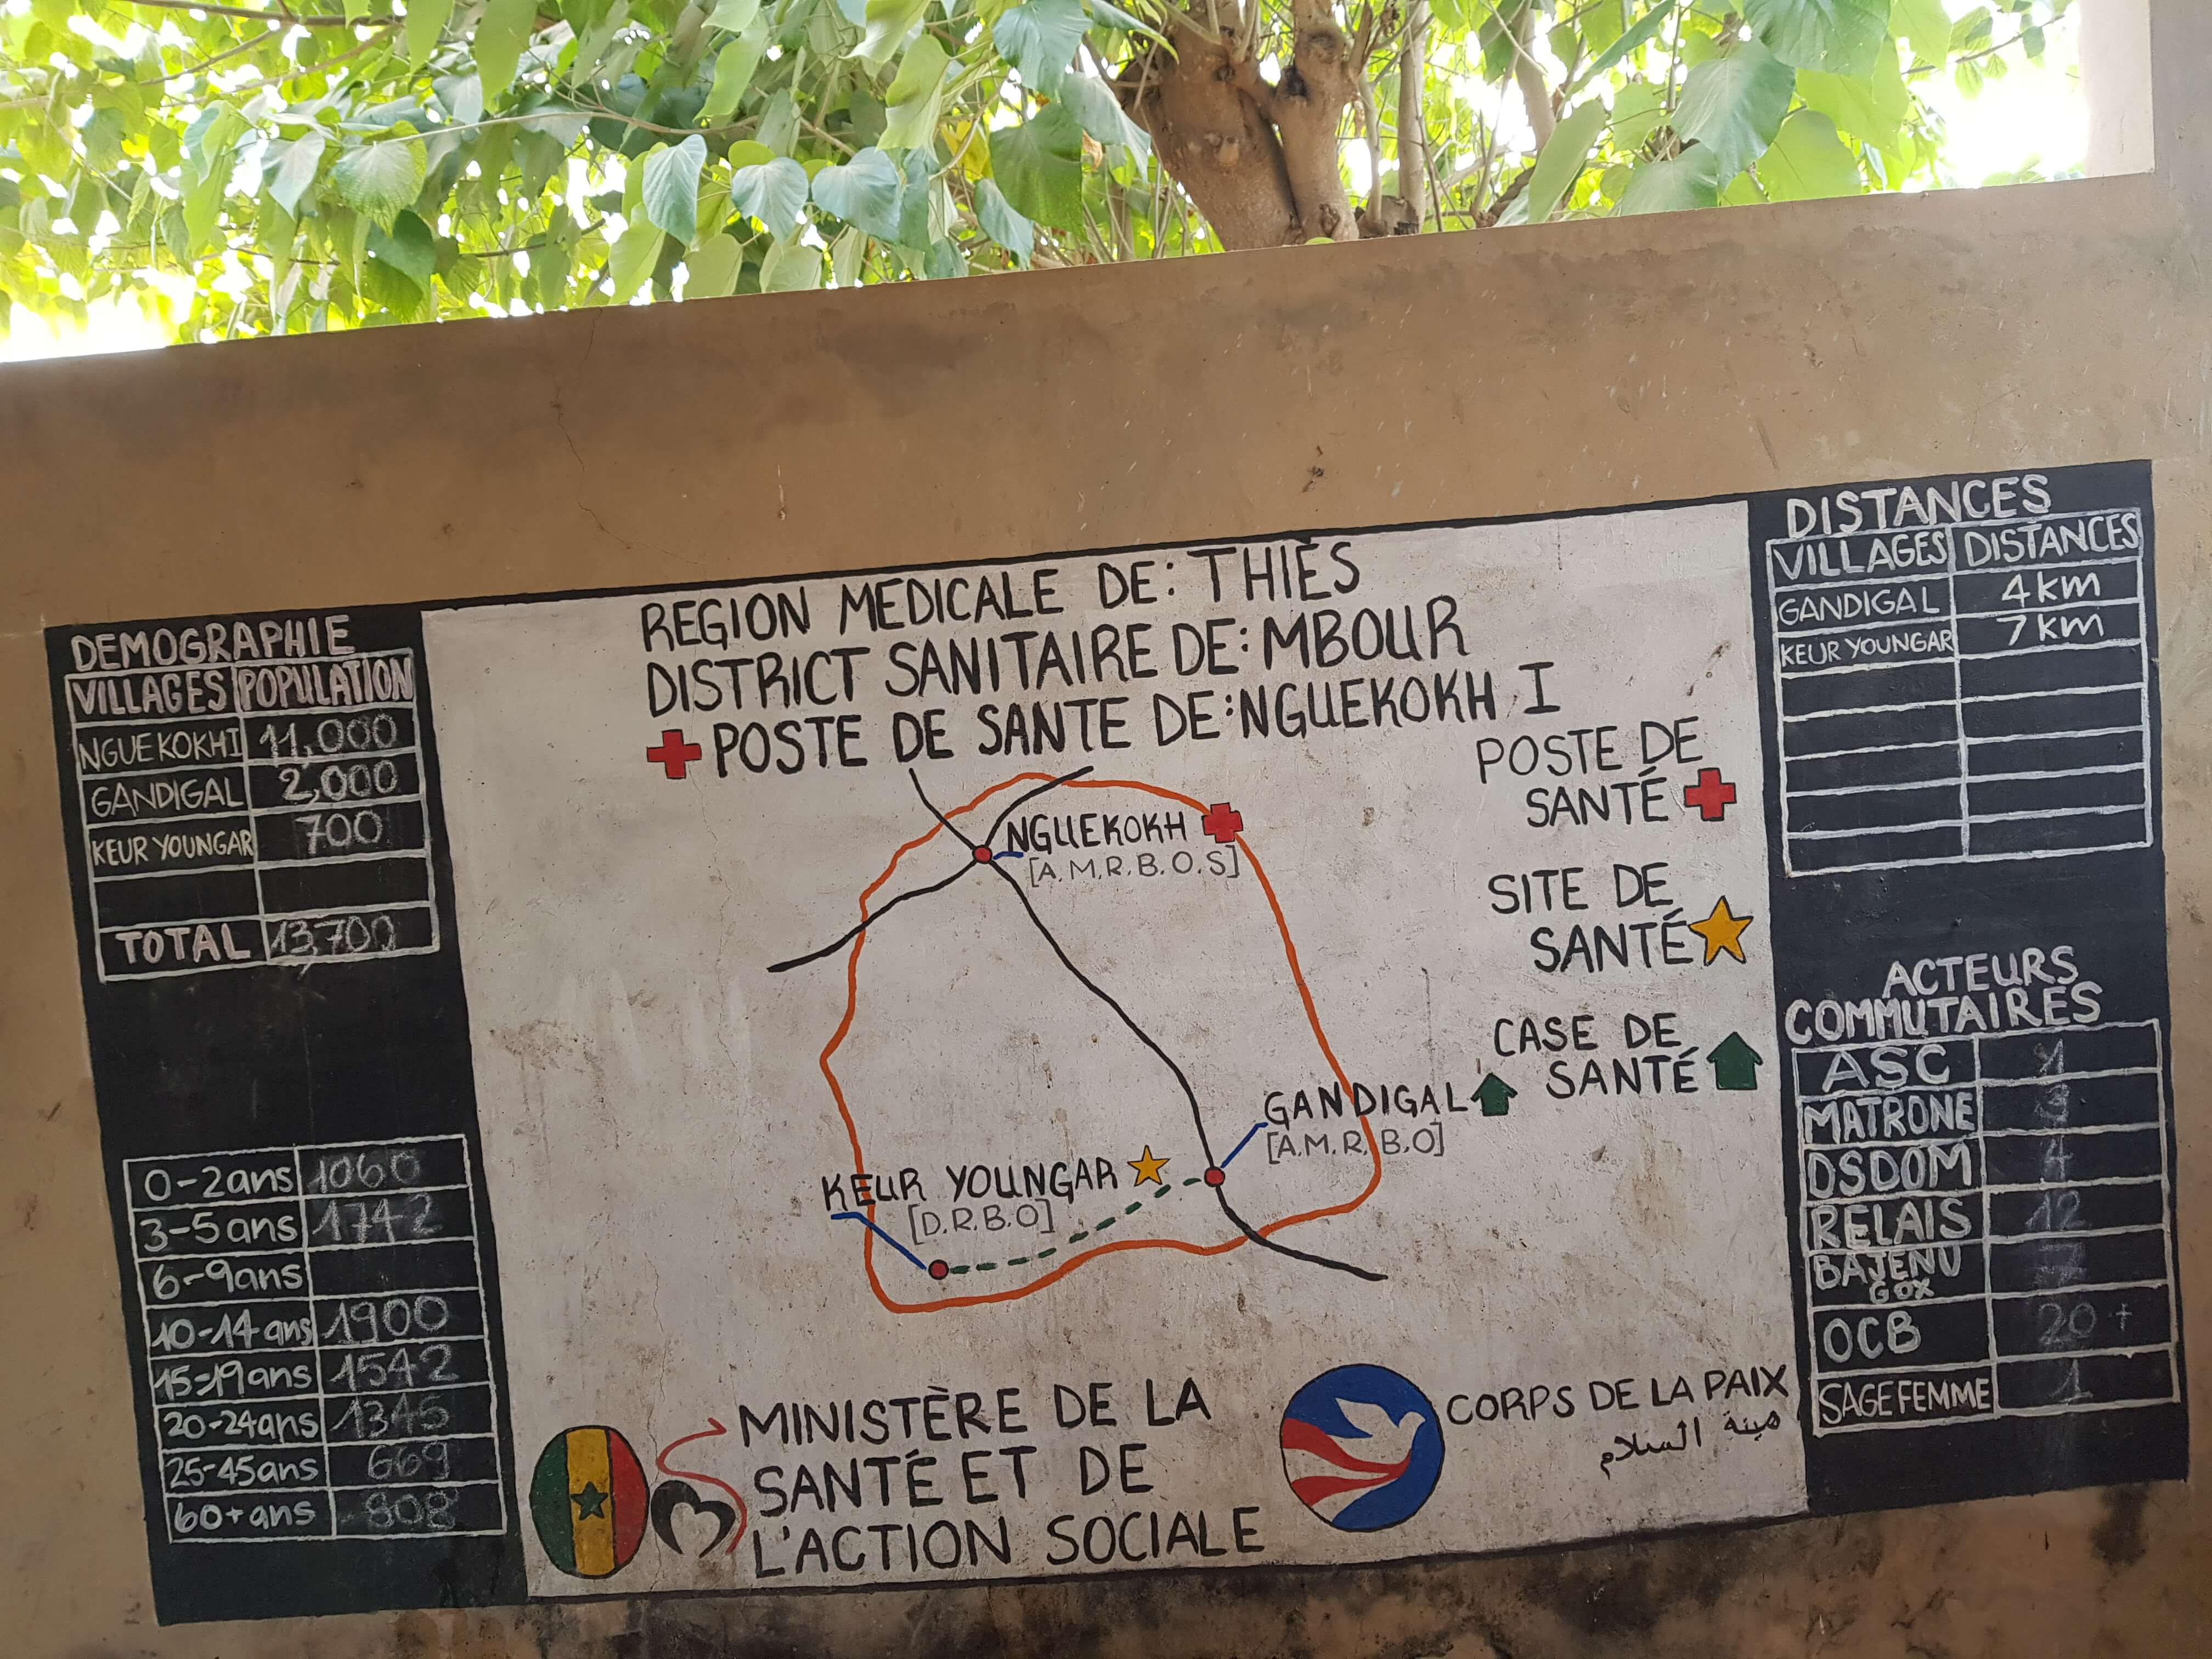 DEMOGRAPHIE
VILLAGES POPULATION
NGUEKOKHI 11,000
GANDIGAL 2,000
KEUR YOUNGAR 700
TOTAL 13,700
0-2ans 1060
3-5ans 1742
6-9ans
10-14 ans 1900
15-19ans 1542
20-24ans 1345
25-45ans 669
60+ans 808
REGION MEDICALE DE: THIÈS
DISTRICT SANITAIRE DE: MBOUR
POSTE DE SANTE DE:NGUEKOKH I
NGUEKOKH
[A.M.R.B.O.S]
GANDIGAL
[A.M.R.B.O]
KEUR YOUNGAR
[D.R.B.O]
POSTE DE
SANTÉ
SITE DE
SANTÉ
CASE DE
SANTÉ
MINISTÈRE DE LA
SANTÉ ET DE
L'ACTION SOCIALE
CORPS DE LA PAIX
هيئة السلام
DISTANCES
VILLAGES DISTANCES
GANDIGAL 4km
KEUR YOUNGAR 7km
ACTEURS
COMMUTAIRES
ASC 1
MATRONE 3
DSDOM 4
RELAIS 12
BAJENU
GOX 7
OCB 20+
SAGE FEMME 1